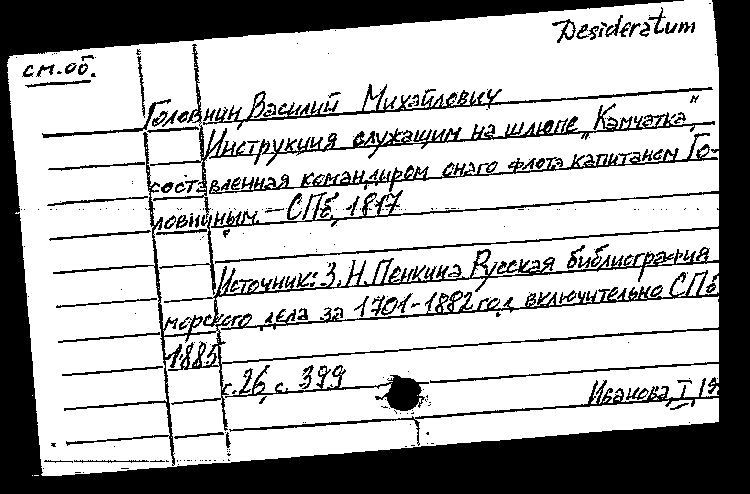 Desideratum
см. об.
Головнин, Василий Михайлович
Инструкция служащим на шлюпе "Камчатка",
составленная командиром онаго флота капитаном Го-
ловниным. – СПб, 1817
Источник: З. Н. Пенкина Русская библиография
морского дела за 1701-1882 год включительно СПб
1885
с. 26, с. 399
Иванова, I, 19